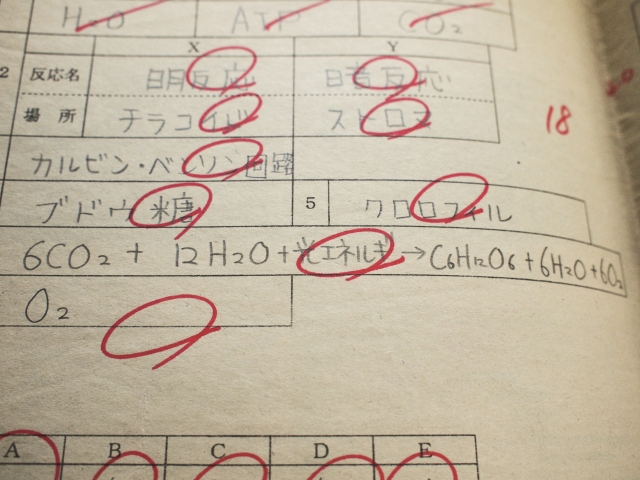 H₂O ATP CO₂
X Y
2 反応名 明反応 暗反応
場所 チラコイド ストロマ
カルビン・ベンソン回路
ブドウ糖 5 クロロフィル
6CO₂ + 12H₂O+光エネルギ→C₆H₁₂O₆+6H₂O+6O₂
O₂
18
A B C D E